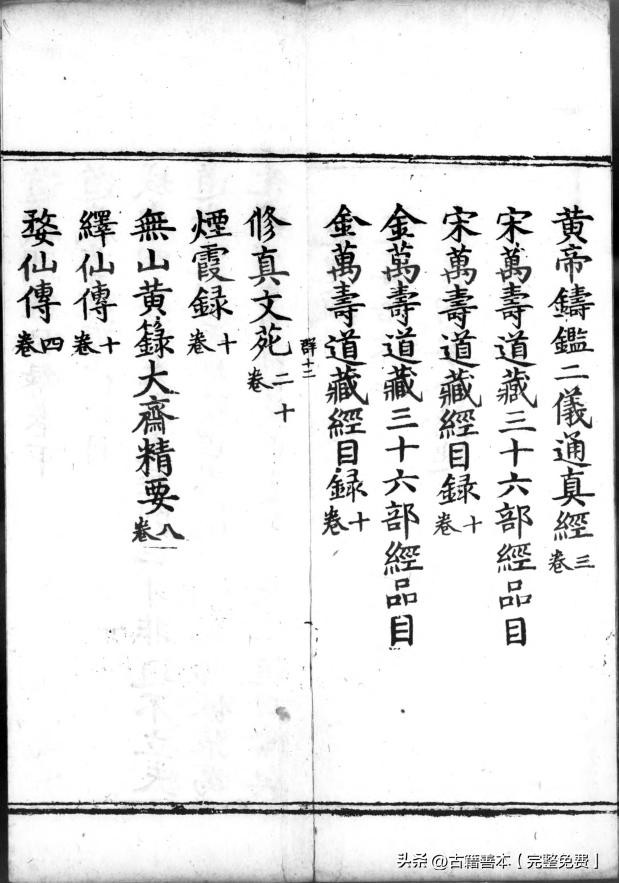 黄帝鑄鑑二儀通真經三卷
宋萬壽道藏三十六部經品目
宋萬壽道藏經目録十卷
金萬壽道藏三十六部經品目
金萬壽道藏經目録十卷
群十二
修真文苑二十卷
煙霞録十卷
無山黄籙大齋精要八卷
繹仙傳十卷
婺仙傳四卷
头条 @古籍善本【完整免费】